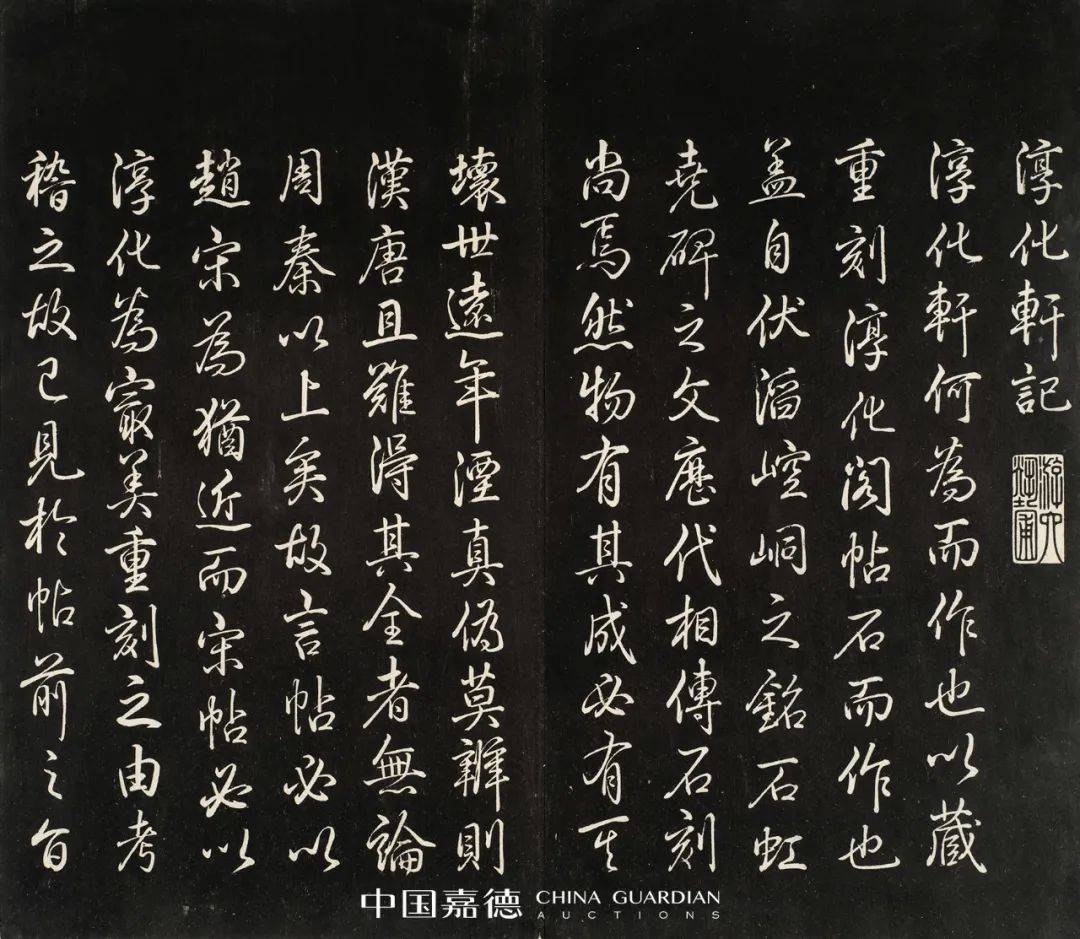 淳化軒記
游六藝圃
淳化軒何為而作也以藏
重刻淳化閣帖石而作也
盖自伏滔崆峒之銘石虹
堯碑之文歷代相傳石刻
尚焉然物有其成必有其
壞世遠年湮真偽莫辨則
漢唐且難得其全者無論
周秦以上矣故言帖必以
趙宋為猶近而宋帖必以
淳化為冣美重刻之由考
稽之故已見於帖前之旨
中国嘉德 CHINA GUARDIAN
AUCTIONS